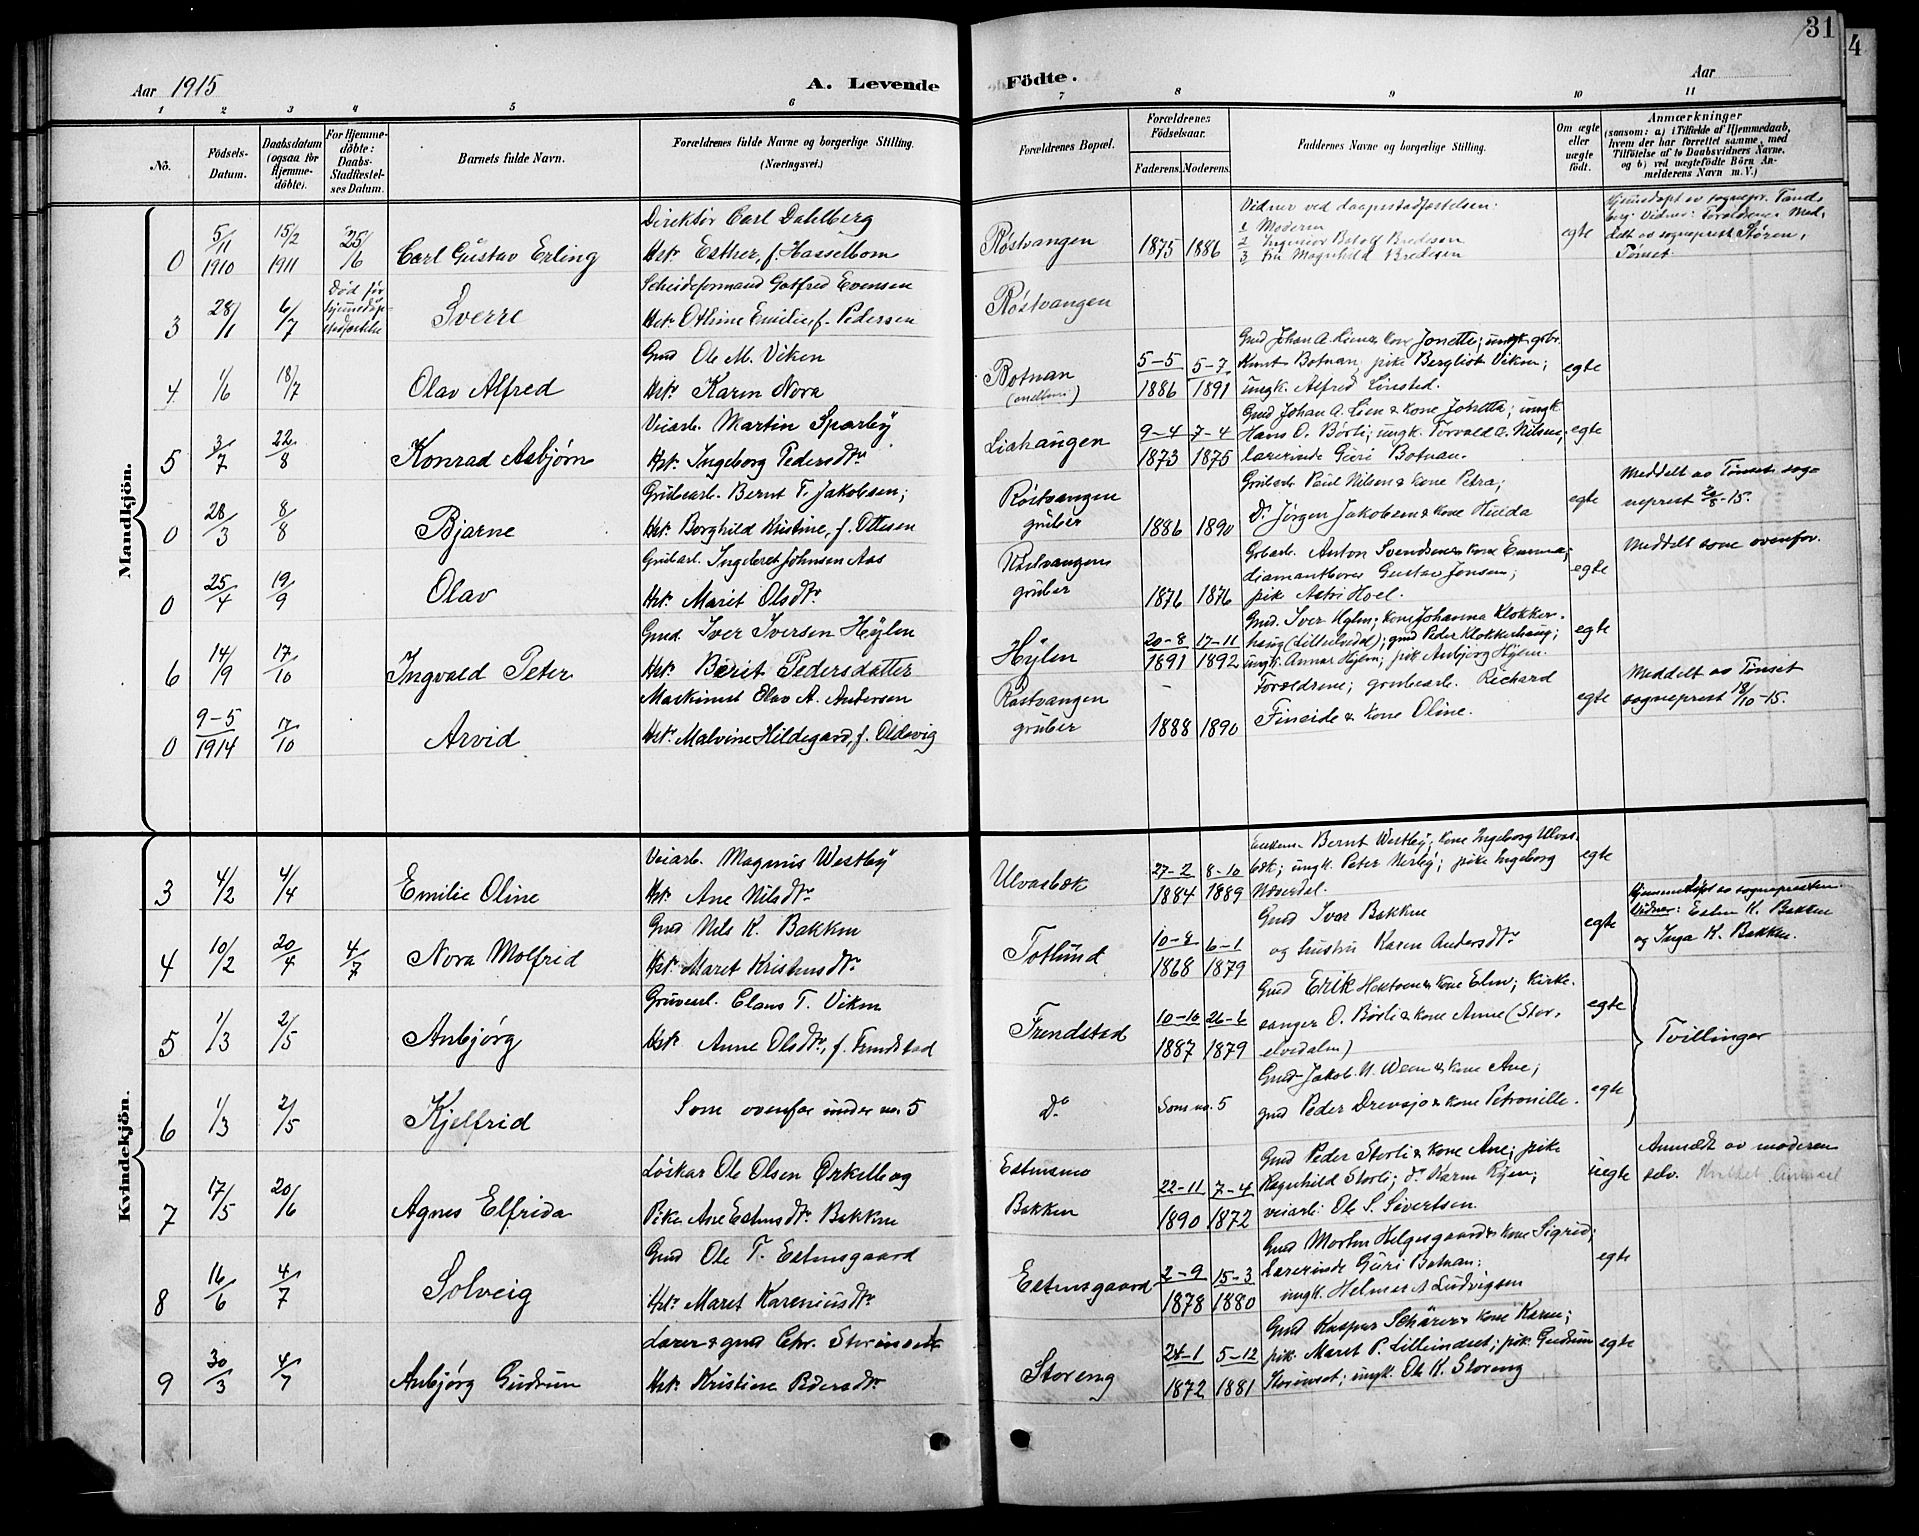 31
4
Aar 1915
A. Levende Födte.
Aar
1 2 3 4 5 6 7 8 9 10 11
No.
Födsels-Datum.
Daabsdatum (ogsaa for Hjemme-döbte).
For Hjemme-döbte: Daabs-Stadfæstel-ses Datum.
Barnets fulde Navn.
Forældrenes fulde Navne og borgerlige Stilling. (Næringsvei.)
Forældrenes Bopæl.
Forældrenes Födselsaar.
Faderens. Moderens.
Faddernes Navne og borgerlige Stilling.
Om ægte eller uægte födt.
Anmærkninger
(saasom: a) i Tilfælde af Hjemmedaab, hvem der har forrettet samme, med Tilföielse af to Daabsvidners Navne, og b) ved uægtefödte Börn An-melderens Navn m. V.)
Mandkjön.
0 5/1 1910 15/2 1911 25/6 Carl Gustav Erling
Direktör Carl Dahlberg
Hst. Esther, f. Hasselbom
Röstvangen 1875 1886
Vidner ved daapsstadfæstelsen:
1 Moderen
2 Ingeniör Botolf Bredesen
3 Fru Magnhild Bredesen
egte
Hjemmedöpt av sognepr. Tand-
berg. Vidner: Forældrene. Med-
delt av sogneprest Stören,
Tönset.
3 28/1 6/7 Död för hjemmedaps-stadfæstelse Sverre
Scheideformand Gotfred Evensen
Hst. Othine Emilie, f. Pedersen
Röstvangen
4 1/6 18/7 Olav Alfred
Gmd Ole M. Viken
Hst. Karen Nora
Botnan
5-5 1886 5-7 1891
Gmd Johan A. Lien & kone Jonette; ungk. gbr.
Knut Botnan, pike Bergliot Viken;
ungk. Alfred Linsted.
egte
5 3/7 22/8 Konrad Asbjörn
Veiarb. Martin Sparby
Hst. Ingeborg Pedersdtr.
Liahaugen
9-4 1873 7-4 1875
Gmd Johan A. Lien & kone Jonetta; ungk
Hans O. Börli; ungk. Torvald A. Nilsen;
lærerinde Guri Botnan.
egte
0 28/3 8/8 Bjarne
Grubearb. Bernt T. Jakobsen;
Hst. Borghild Kristine, f. Ottesen
Röstvangen gruber
1886 1890
Grubearb. Paul Nilsen & kone Petra;
Do. Jörgen Jakobsen & kone Hulda
egte
Meddelt av Tönset sog-
neprest 20/8-15.
0 25/4 19/9 Olav
Grubearb. Ingebret Johnsen Aas
Hst. Marit Olsdtr.
Röstvangens gruber
1876 1876
Grbarb. Anton Svendsen & kone Emma;
diamantborer Gustav Jonsen;
pik. Astri Hoel.
egte
Meddelt som ovenfor.
6 14/9 17/10 Ingvald Peter
Gmd. Iver Iversen Hÿlen
Hst. Berit Pedersdatter
Hÿlen
20-8 1891 17-11 1892
Gmd. Iver Hylen; kone Johanna Klokker-
haug (Lilleelvedal); gmd Peder Klokkerhaug;
ungk. Annar Hylen; pik Anbjörg Hÿlen.
egte
0 9-5 1914 17/10 Arvid
Maskinist Olav A. Andersen
Hst. Malvine Hildegard, f. Oldevig
Röstvangen gruber
- 1888 1890
Forældrene; grubearb. Richard
Fineide & kone Oline.
egte
Meddelt av Tönset
sogneprest 18/10-15.
Kvindekjön.
3 4/2 4/4 Emilie Oline
Veiarb. Magnus Westby
Hst. Ane Nilsdtr.
Ulvasbæk
27-2 1884 8-10 1889
Bernt Westby; kone Ingeborg Ulvas-
bæk; ungk. Peter Nerby; pike Ingeborg
Næverdal.
egte
4 10/2 20/4 4/7 Nora Molfrid
Gmd Nils K. Bakken
Hst. Maret Kristensdtr.
Totlund
10-2 1868 6-1 1879
Gmd Ivar Bakken
og hustru Karen Andersdtr.
egte
Hjemmedöpt av sognepresten.
Vidner: Esten K. Bakken
og Inga K. Bakken.
5 1/3 2/5 Anbjörg
Gruvearb. Claus T. Viken
Hst. Anne Olsdtr., f. Trendstad
Trendstad
10-10 1887 26-6 1879
Gmd Erik Hektoen & kone Elen; kirke-
sanger O. Börli & kone Anne (Stor-
elvedalen)
egte
Tvillinger
6 1/3 2/5 Kjelfrid
Som ovenfor under no. 5
Do.
Som no. 5
Gmd Jakob N. Ween & kone Ane;
gmd Peder Drevsjö & kone Petronille.
egte
7 17/5 20/6 Agnes Elfrida
Löskar Ole Olsen Örkelbog
Pike Ane Estensdtr. Bakken
Estensmo
Bakken
22-11 1890 7-4 1872
Gmd Peder Storli & kone Ane; pike
Ragnhild Storli; do. Karen Ryen;
veiarb. Ole S. Sivertsen.
uegte
Anmeldt av moderen
selv.
8 16/6 4/7 Solveig
Gmd Ole T. Estensgaard
Hst. Maret Kareniusdtr.
Estensgaard
2-9 1878 15-3 1880
Gmd Morten Helgesgaard & kone Sigrid;
Lærerinde Guri Botnan;
ungk. Helmer A Ludvigsen
egte
9 30/3 4/7 Anbjörg Gudrun
Lærer & gmd Chr. Storinset
Hst. Kristine Pedersdtr.
Storeng
24-1 1872 5-12 1881
Gmd Kaspar Schärer & kone Karen;
pik. Maret P. Lilleindset; pik. Gudrun
Storinset; ungk. Ole K. Storeng
egte